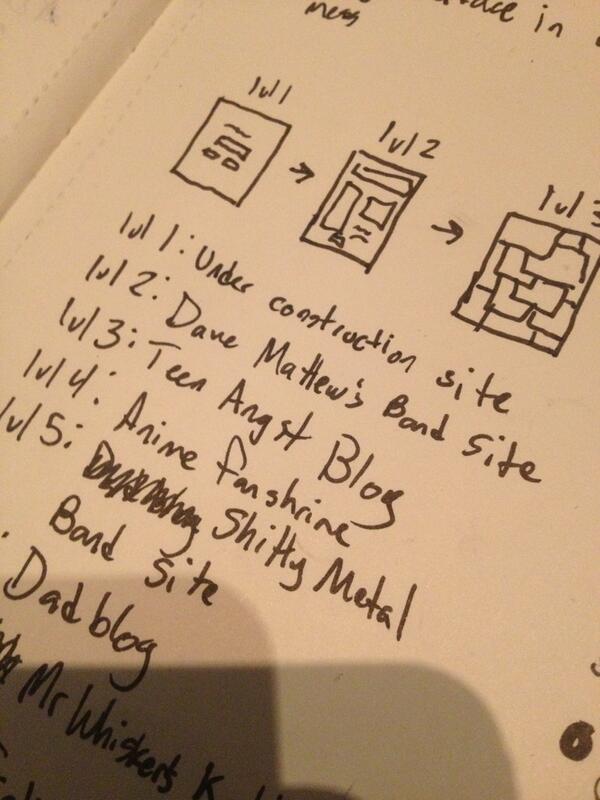 in
mess
lvl 1
lvl 2
lvl 3
lvl 1: Under construction site
lvl 2: Dave Mattew's Band Site
lvl 3: Teen Angst Blog
lvl 4: Anime fanshrine
lvl 5: Shitty Metal
Band Site
Dadblog
Mr Whiskers